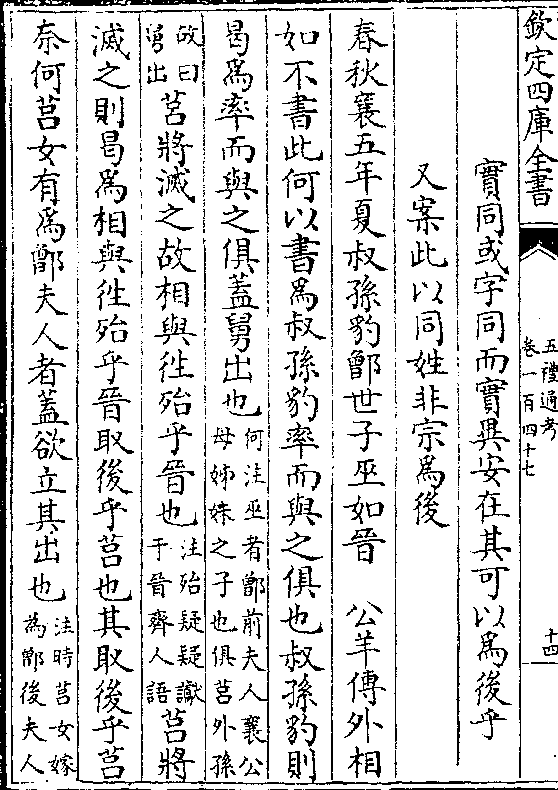 欽定四庫全書
五禮通考
卷一百四十七
十四
實同或字同而實異安在其可以為後乎
又案此以同姓非宗為後
春秋襄五年夏叔孫豹鄫世子巫如晉　公羊傳外相
如不書此何以書為叔孫豹率而與之俱也叔孫豹則
曷為率而與之俱蓋舅出也何注巫者鄫前夫人襄公
母姊妹之子也俱莒外孫
故曰
舅出莒將滅之故相與往殆乎晉也注殆疑疑讞
于晉齊人語莒將
滅之則曷為相與往殆乎晉取後乎莒也其取後乎莒
奈何莒女有為鄫夫人者蓋欲立其出也注時莒女嫁
為鄫後夫人